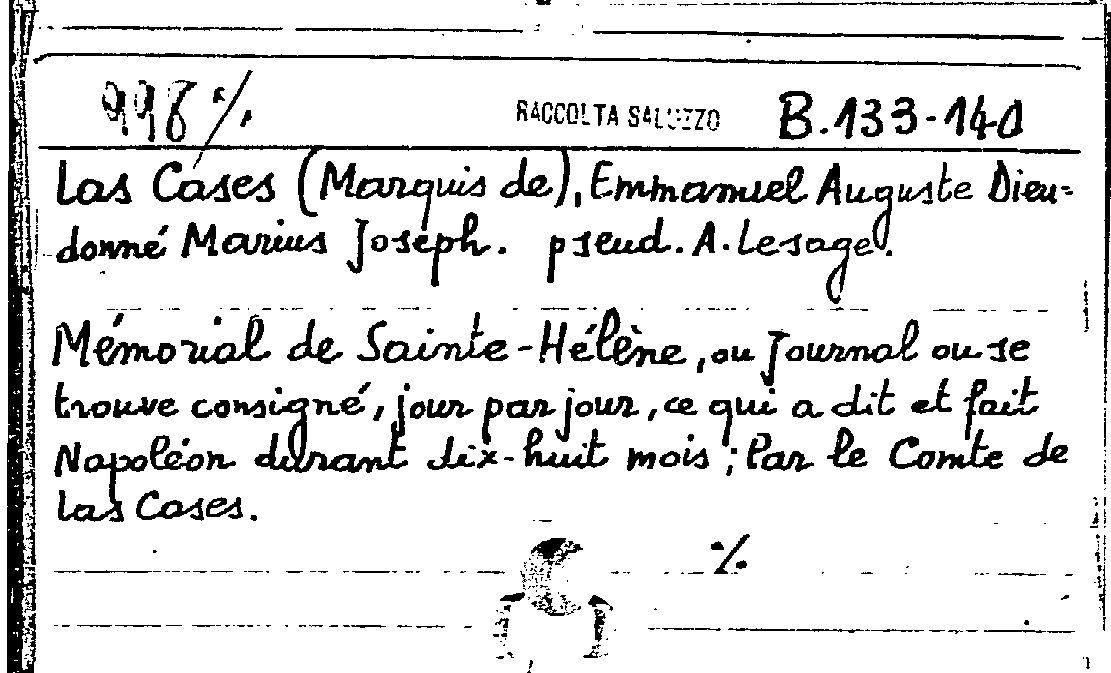 998 ./. RACCOLTA SALUZZO B.133-140
Las Cases (Marquis de), Emmanuel Auguste Dieu=
donné Marius Joseph. pseud. A. Lesage.
Mémorial de Sainte-Hélène, ou Journal ou se
trouve consigné, jour par jour, ce qui a dit et fait
Napoléon durant dix-huit mois; Par le Comte de
Las Cases.
./.